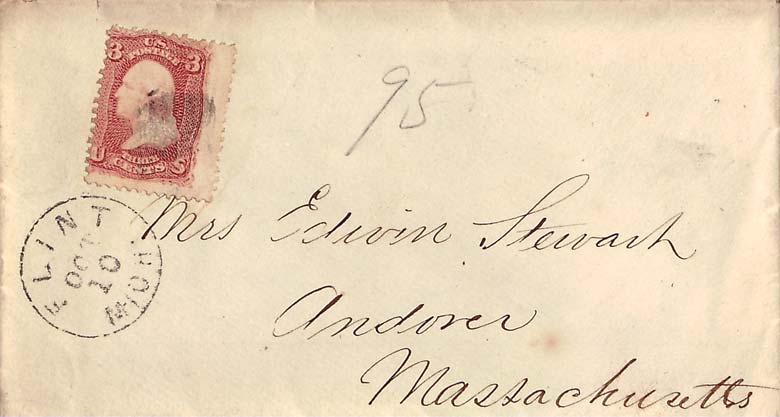 3 U.S. 3
POSTAGE
U S
THREE
CENTS
95
FLINT
OCT
10
MICH
Mrs Edwin Stewart
Andover
Massachusetts